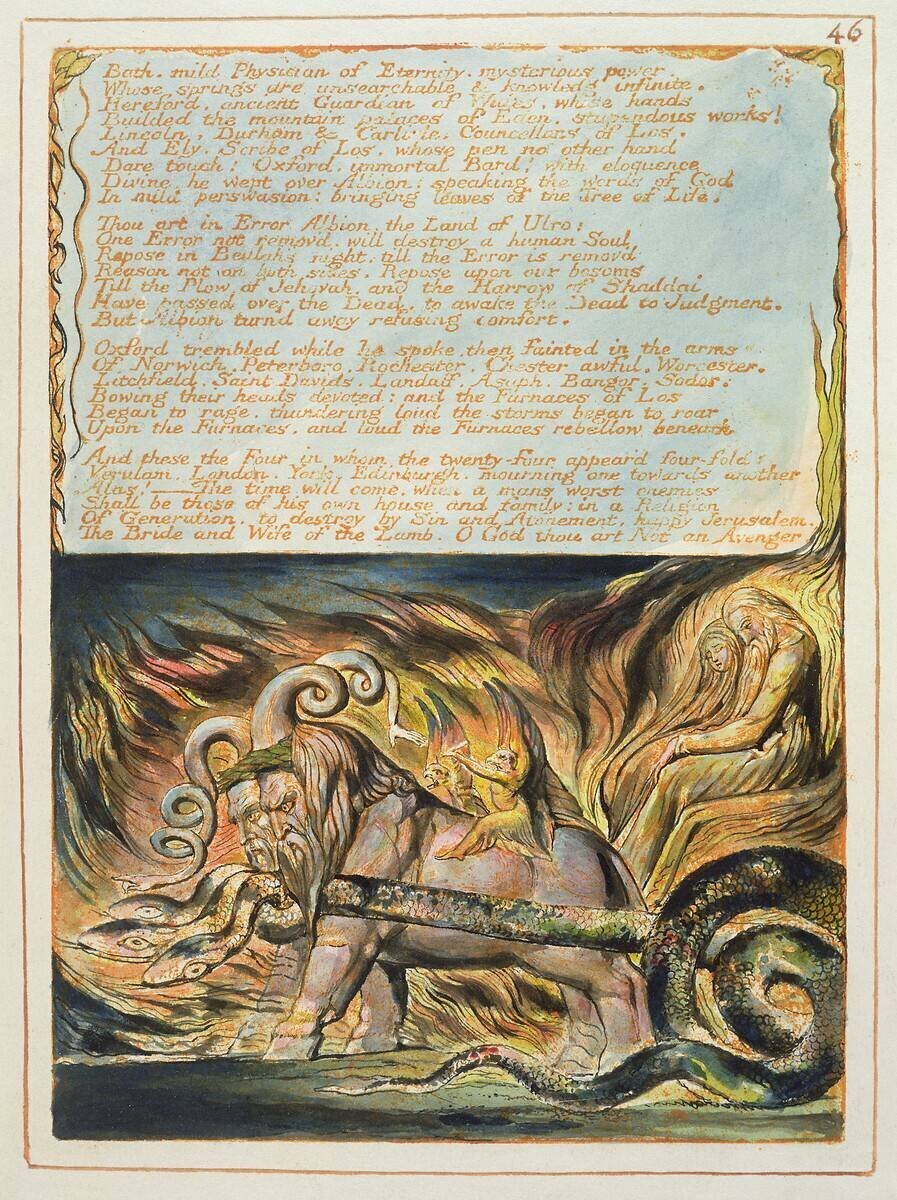 46
Bath. mild Physician of Eternity. mysterious power
Whose springs are unsearchable & knowledg infinite.
Hereford, ancient Guardian of Wales, whose hands
Builded the mountain palaces of Eden, stupendous works!
Lincoln, Durham & Carlisle, Councellors of Los.
And Ely, Scribe of Los, whose pen no other hand
Dare touch! Oxford, immortal Bard! with eloquence
Divine, he wept over Albion: speaking the words of God
In mild perswasion: bringing leaves of the Tree of Life.
Thou art in Error Albion, the Land of Ulro:
One Error not remov'd, will destroy a human Soul
Repose in Beulahs night, till the Error is remov'd
Reason not on both sides. Repose upon our bosoms
Till the Plow of Jehovah, and the Harrow of Shaddai
Have passed over the Dead, to awake the Dead to Judgment.
But Albion turnd away refusing comfort.
Oxford trembled while he spoke, then fainted in the arms
Of Norwich, Peterboro, Rochester, Chester awful, Worcester,
Litchfield, Saint Davids, Landaff, Asaph, Bangor, Sodor,
Bowing their heads devoted: and the Furnaces of Los
Began to rage, thundering loud the storms began to roar
Upon the Furnaces, and loud the Furnaces rebellow beneath
And these the Four in whom the twenty-four appeard four-fold:
Verulam, London, York, Edinburgh, mourning one towards another
Alas!—The time will come, when a mans worst enemies
Shall be those of his own house and family: in a Religion
Of Generation, to destroy by Sin and Atonement, happy Jerusalem,
The Bride and Wife of the Lamb. O God thou art Not an Avenger